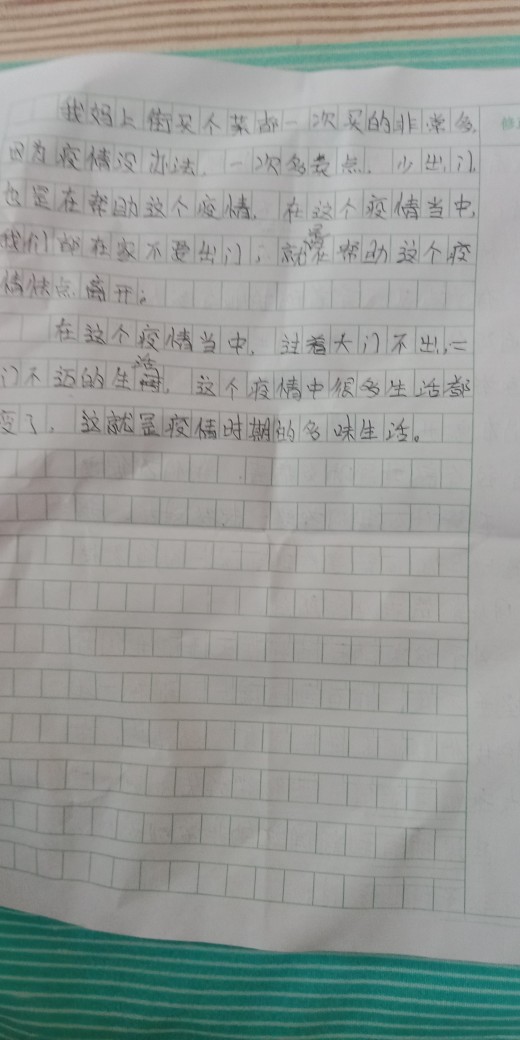 我妈上街买个菜都一次买的非常多,
因为疫情没办法,一次多卖点,少出门,
也是在帮助这个疫情,在这个疫情当中,
我们都在家不要出门,就是在帮助这个疫
情快点离开。
在这个疫情当中,过着大门不出,二
门不迈的生活,这个疫情中很多生活都
变了,这就是疫情时期的多味生活。